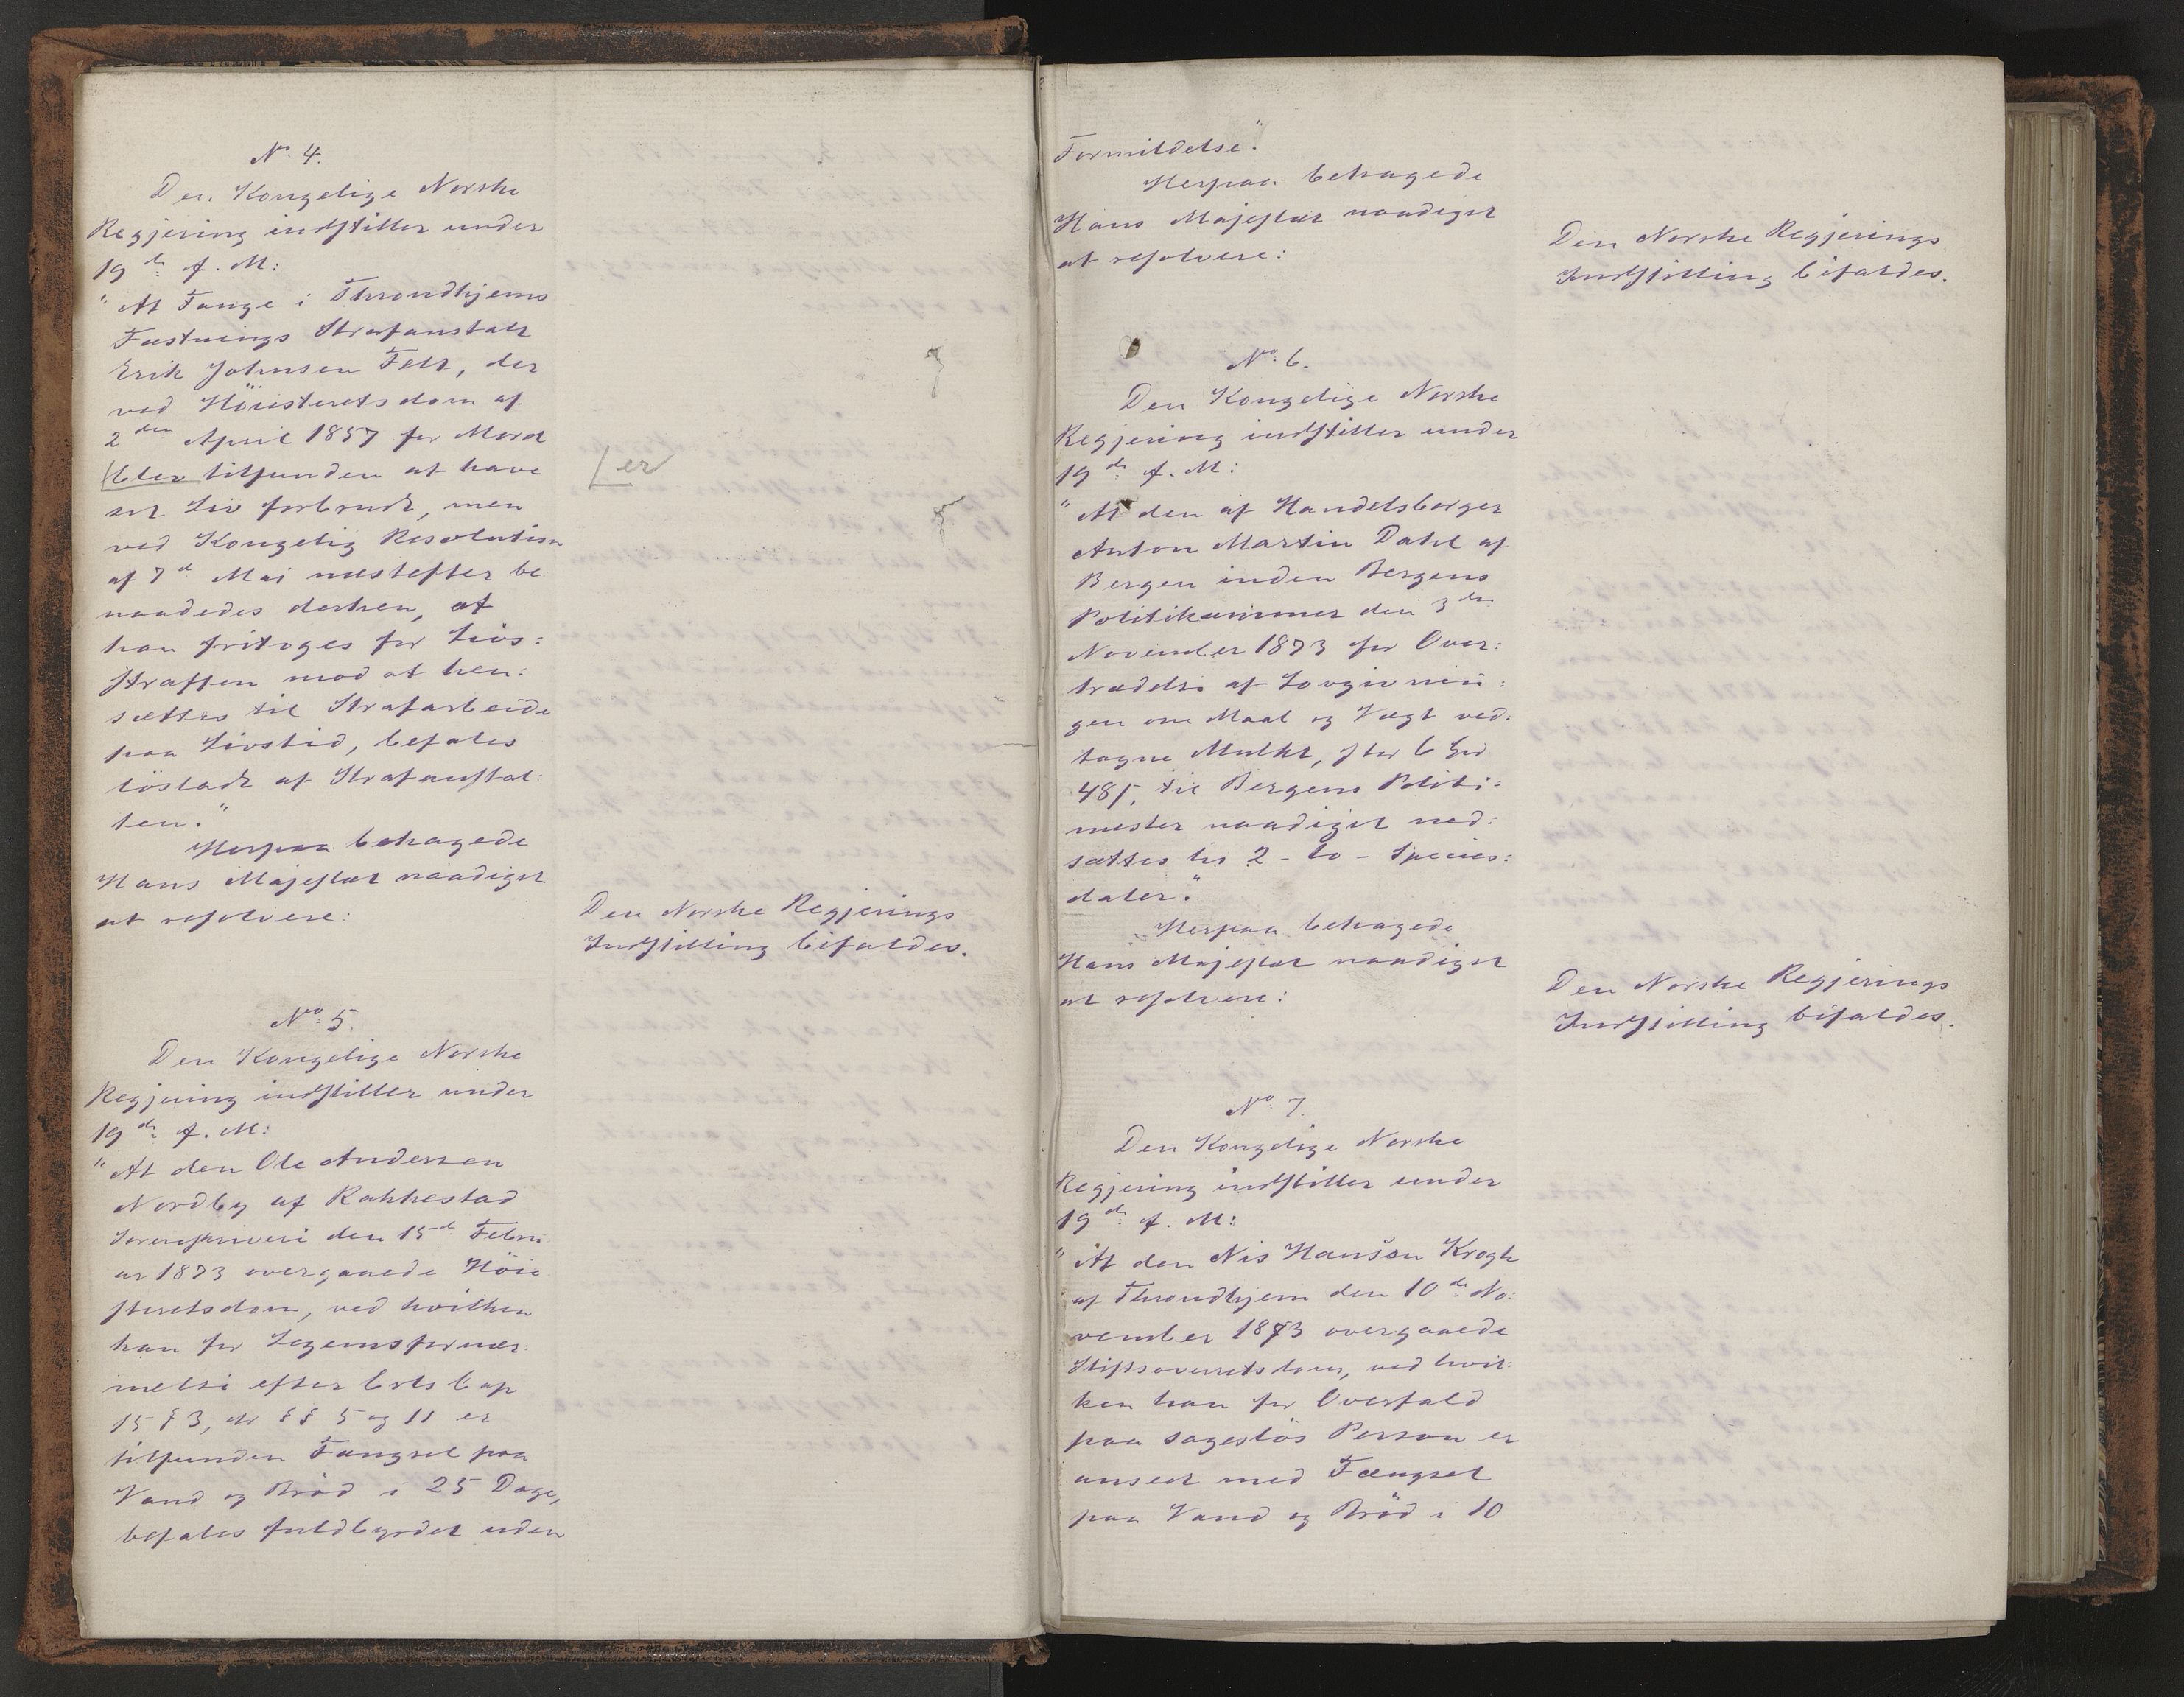 No. 4.
Den Kongelige Norske
Regjering indstiller under
19de f. M:
"At Fange i Throndhjems
Fæstnings Strafanstalt
Erik Johnsen Felt, der
ved Höiesteretsdom af
2den April 1857 for Mord
blev tilfunden at have
er
sit Liv forbrudt, men
ved Kongelig Resolution
af 7de Mai næstefter be
naadedes derhen, at
han fritoges for Livs:
straffen mod at hen:
sættes til Strafarbeide
paa Livstid, befales
lösladt af Strafanstal:
ten."
Herpaa behagede
Hans Majestæt naadigst
at resolvere:
Den Norske Regjerings
Indstilling bifaldes.
No. 5.
Den Kongelige Norske
Regjering indstiller under
19de f. M:
"At den Ole Andersen
Nordby af Rakkestad
Sorenskriveri den 15de Febru
ar 1873 overgaaede Höie
steretsdom, ved hvilken
han for Legemsfornær:
melse efter Crls Cap
15 § 3, cfr §§ 5 og 11 er
tilfunden Fængsel paa
Vand og Bröd i 25 Dage,
befales fuldbyrdet uden
Formildelse."
Herpaa behagede
Hans Majestæt naadigst
at resolvere:
Den Norske Regjerings
Indstilling bifaldes.
No. 6.
Den Kongelige Norske
Regjering indstiller under
19de f. M:
"At den af Handelsborger
Anton Martin Dahl af
Bergen inden Bergens
Politikammer den 3die
November 1873 for Over:
trædelse af Lovgivnin:
gen om Maal og Vægt ved:
tagne Mulkt, stor 6 Spd
48 ß, til Bergens Politi:
mester naadigst ned:
sættes til 2 - to - Species:
daler."
Herpaa behagede
Hans Majestæt naadigst
at resolvere:
Den Norske Regjerings
Indstilling bifaldes.
No. 7.
Den Kongelige Norske
Regjering indstiller under
19de f. M:
"At den Nis Hansen Krogh
af Throndhjem den 10de No:
vember 1873 overgaaede
Stiftsoverretsdom, ved hvil:
ken han for Overfald
paa sageslös Person er
anseet med Fængsel
paa Vand og Bröd i 10